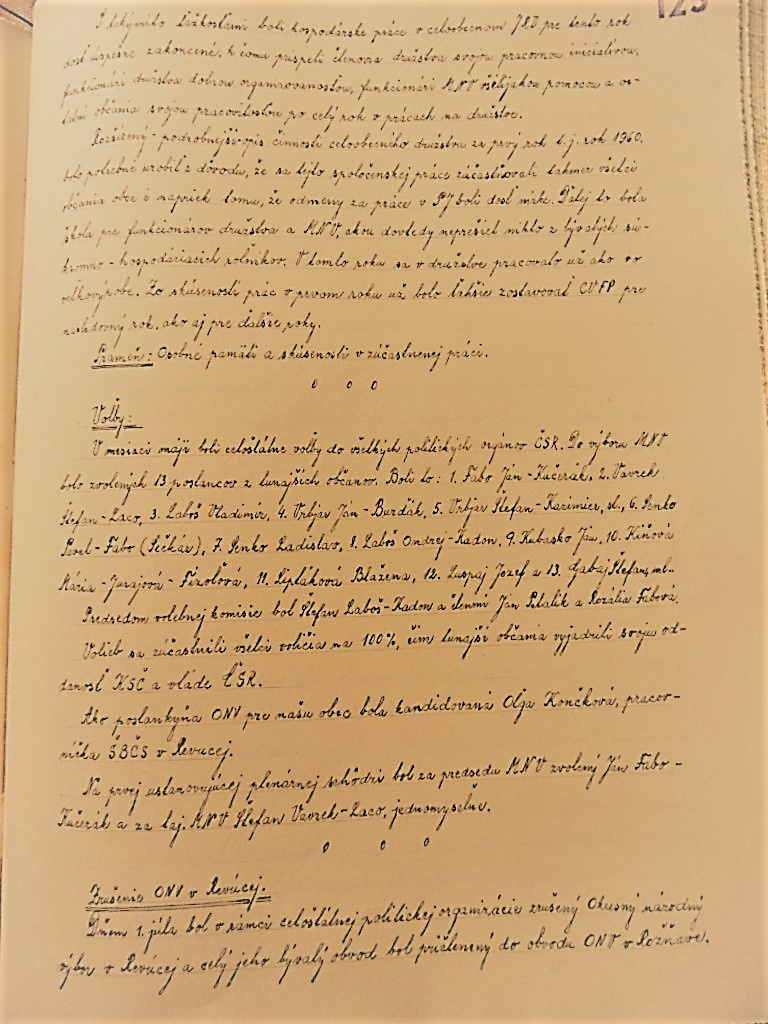 123
S takýmito ťažkosťami boli hospodárske práce v celoobecnom JRD pre tento rok
dosť úspešne zakončené, k čomu prispeli členovia družstva svojou pracovnou iniciatívou,
funkcionári družstva dobrou organizovanosťou, funkcionári MNV všelijakou pomocou a os-
tatní občania svojou pracovitosťou po celý rok v prácach na družstve.
Rozšírený - podrobnejší opis činnosti celoobecného družstva za prvý rok t. j. rok 1960.
bolo potrebné urobiť z dôvodu, že sa tejto spoločenskej práce zúčastňovali takmer všetci
občania obce i napriek tomu, že odmeny za práce v PJ boli dosť nízke. Ďalej to bola
škola pre funkcionárov družstva a MNV, akou dovtedy neprešiel nikto z bývalých sú-
kromno - hospodáriacich roľníkov. V tomto roku sa v družstve pracovalo už ako vo
veľkovýrobe. Zo skúseností prác v prvom roku už bolo ľahšie zostavovať CVFP pre
nasledovný rok, ako aj pre ďalšie roky.
Prameň: Osobné pamäti a skúsenosti v zúčastnenej práci.
o o o
Voľby:
V mesiaci máji boli celoštátne voľby do všetkých politických orgánov ČSR. Do výboru MNV
bolo zvolených 13 poslancov z tunajších občanov. Boli to: 1. Fábo Ján - Kučerák, 2. Vavrek
Štefan - Laco, 3. Laboš Vladimír, 4. Vrbjar Ján - Burďák, 5. Vrbjar Štefan - Kazimier, st., 6. Penko
Pavel - Fabo (Sečkár), 7. Penko Ladislav, 8. Laboš Ondrej - Kadon, 9. Kubasko Ján, 10. Kiňová
Mária - Jurajová - Fizoľová, 11. Liptáková Blažena, 12. Luspaj Jozef a 13. Gabaj Štefan, ml..
Predsedom volebnej komisie bol Štefan Laboš - Kadon a členmi Ján Petalík a Rozália Fábová.
Volieb sa zúčastnili všetci voličia na 100%, čím tunajší občania vyjadrili svoju od-
danosť KSČ a vláde ČSR.
Ako poslankyňa ONV pre našu obec bola kandidovaná Oľga Končková, pracov-
níčka ŠBČS v Revúcej.
Na prvej ustanovujúcej plenárnej schôdzi bol za predsedu MNV zvolený Ján Fabo -
Kučerák a za taj. MNV Štefan Vavrek - Laco, jednomyseľne.
o o o
Zrušenie ONV v Revúcej.
Dňem 1. júla bol v rámci celoštátnej politickej organizácie zrušený Okresný národný
výbor v Revúcej a celý jeho bývalý obvod bol pričlenený do obvodu ONV v Rožňave.